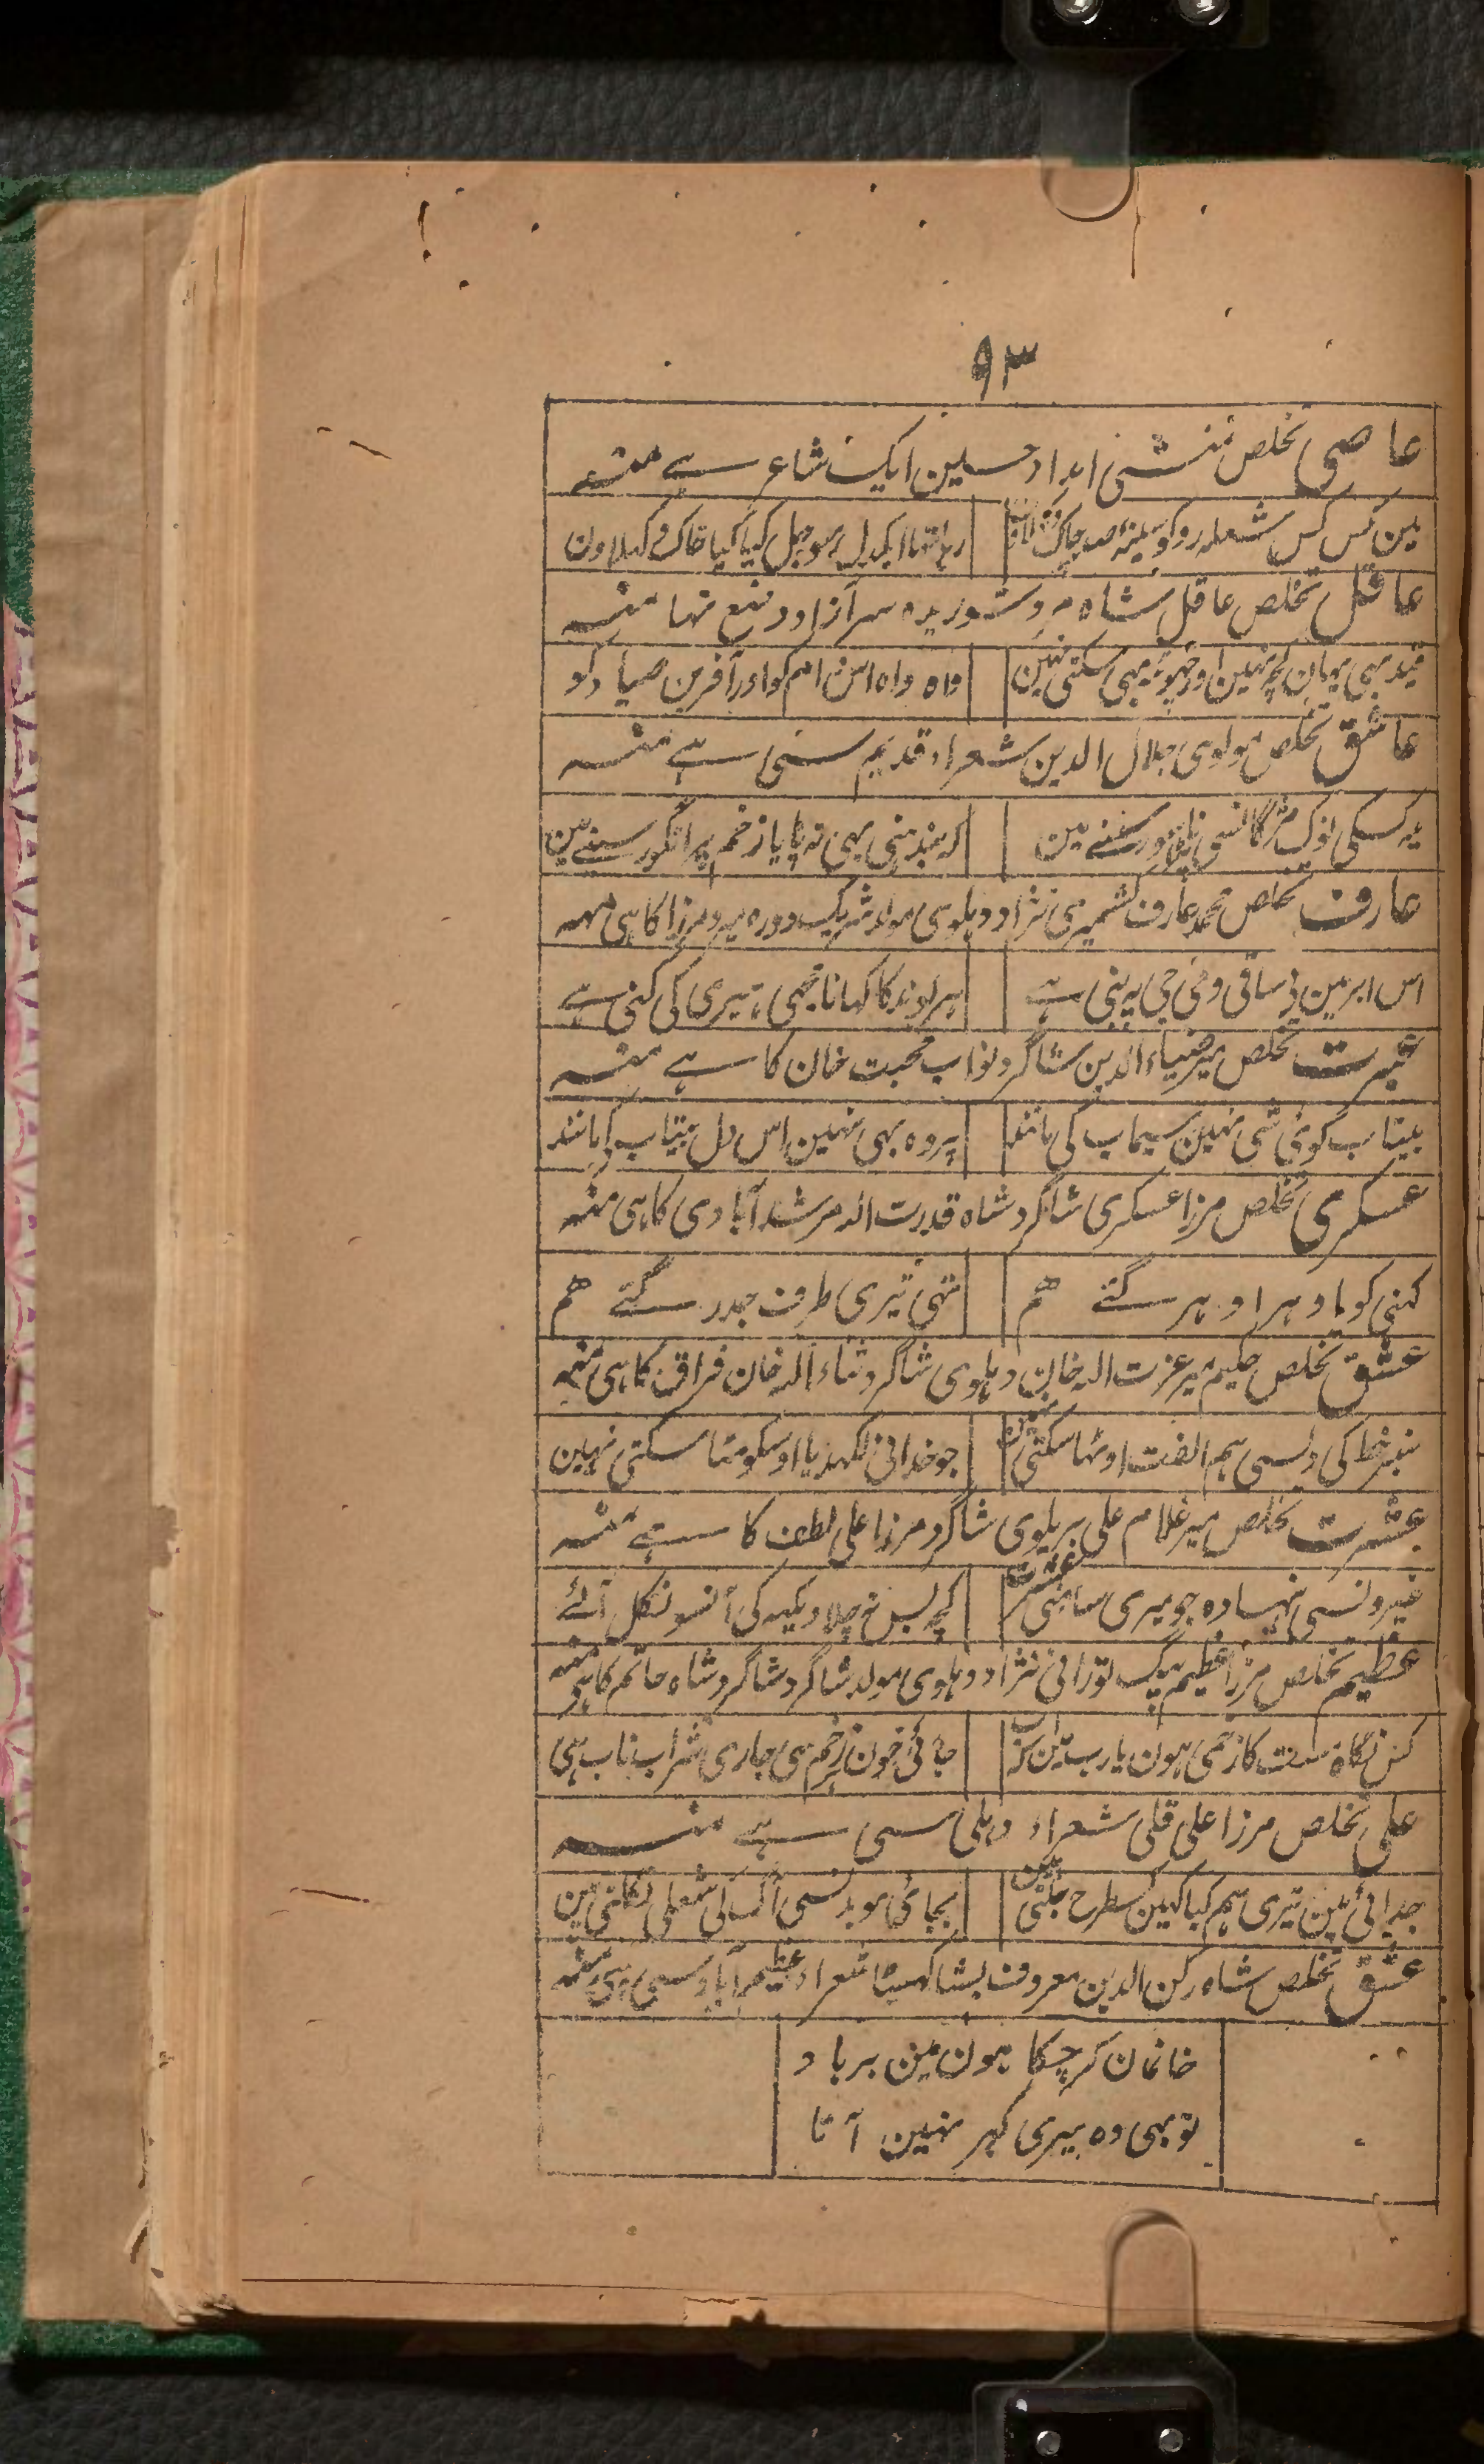 ۹۳
عاصی تخلص منشی امداد حسین ایک شاعر ہے منہ
مین کس کس شعلہ رو کو سینہ صد چاک دکھلاؤن
رہا تہا ایک دل سو جل کیا کیا خاک دکہلاون
عاقل تخلص عاقل شاہ مرد شوریدہ سر آزاد وضع تہا منہ
قید بہی یہان کچہ نہین اور چہوٹ بہی سکتی نہین
واہ واہ اس دام کو اور آفرین صیاد کو
عاشق تخلص مولوی جلال الدین شعراء قدیم سی ہے منہ
یہ کسکی نوک مژگانسی پڑا سینے مین
کہ بندہنی بہی نہ پایا زخم پر انگور سینے مین
عارف تخلص محمد عارف کشمیری نژاد دہلوی مولد شریک دورہ میر و مرزا کا ہی منہ
اس ابر مین بی ساقی و می جی پہ بنی ہے
ہر بوند کا کہانا مجہی ہیری کی کنی ہے
عبرت تخلص میر ضیاء الدین شاگرد نواب محبت خان کا ہے منہ
بیتاب کوئی شی نہین سیماب کی مانند
پر وہ بہی نہین اس دل بیتاب کی مانند
عسکری تخلص مرزا عسکری شاگرد شاہ قدرت اللہ مرشد آبادی کا ہی منہ
کہنی کو یا دہر اودہر گئے ہم
تہی تیری طرف جدہر گئے ہم
عشق تخلص حکیم میر عزت اللہ خان دہلوی شاگرد ثناء اللہ خان فراق کا ہی منہ
سبز خط کی دلسی ہم الفت اوٹہا سکتی نہین
جو خدانی لکہدیا اوسکو مٹا سکتی نہین
عشرت تخلص میر غلام علی بریلوی شاگرد مرزا علی لطف کا ہے منہ
غیرونسی ہنسا وہ جو میری سامہنی عشرت
کچہ بس نہ چلا دیکہہ کی آنسو نکل آئے
عظیم تخلص مرزا عظیم بیگ تورانی نژاد دہلوی مولد شاگرد شاگرد شاہ حاتم کا ہی منہ
کس نگاہ مست کا زخمی ہون یارب مین کہ اب
جائی خون زخم سی جاری شراب ناب ہی
علی تخلص مرزا علی قلی شعراء دہلی سی ہے منہ
جدائی مین تیری ہم کیا کہین کسطرح جلتی ہین
بجائی مو بدنسی آگ کی شعلی نکلتی ہین
عشق تخلص شاہ رکن الدین معروف بشاہ گہسیٹا شعراء عظیم آباد سی ہی منہ
خانمان کر چکا ہون مین برباد
تو بہی وہ میری گہر نہین آتا